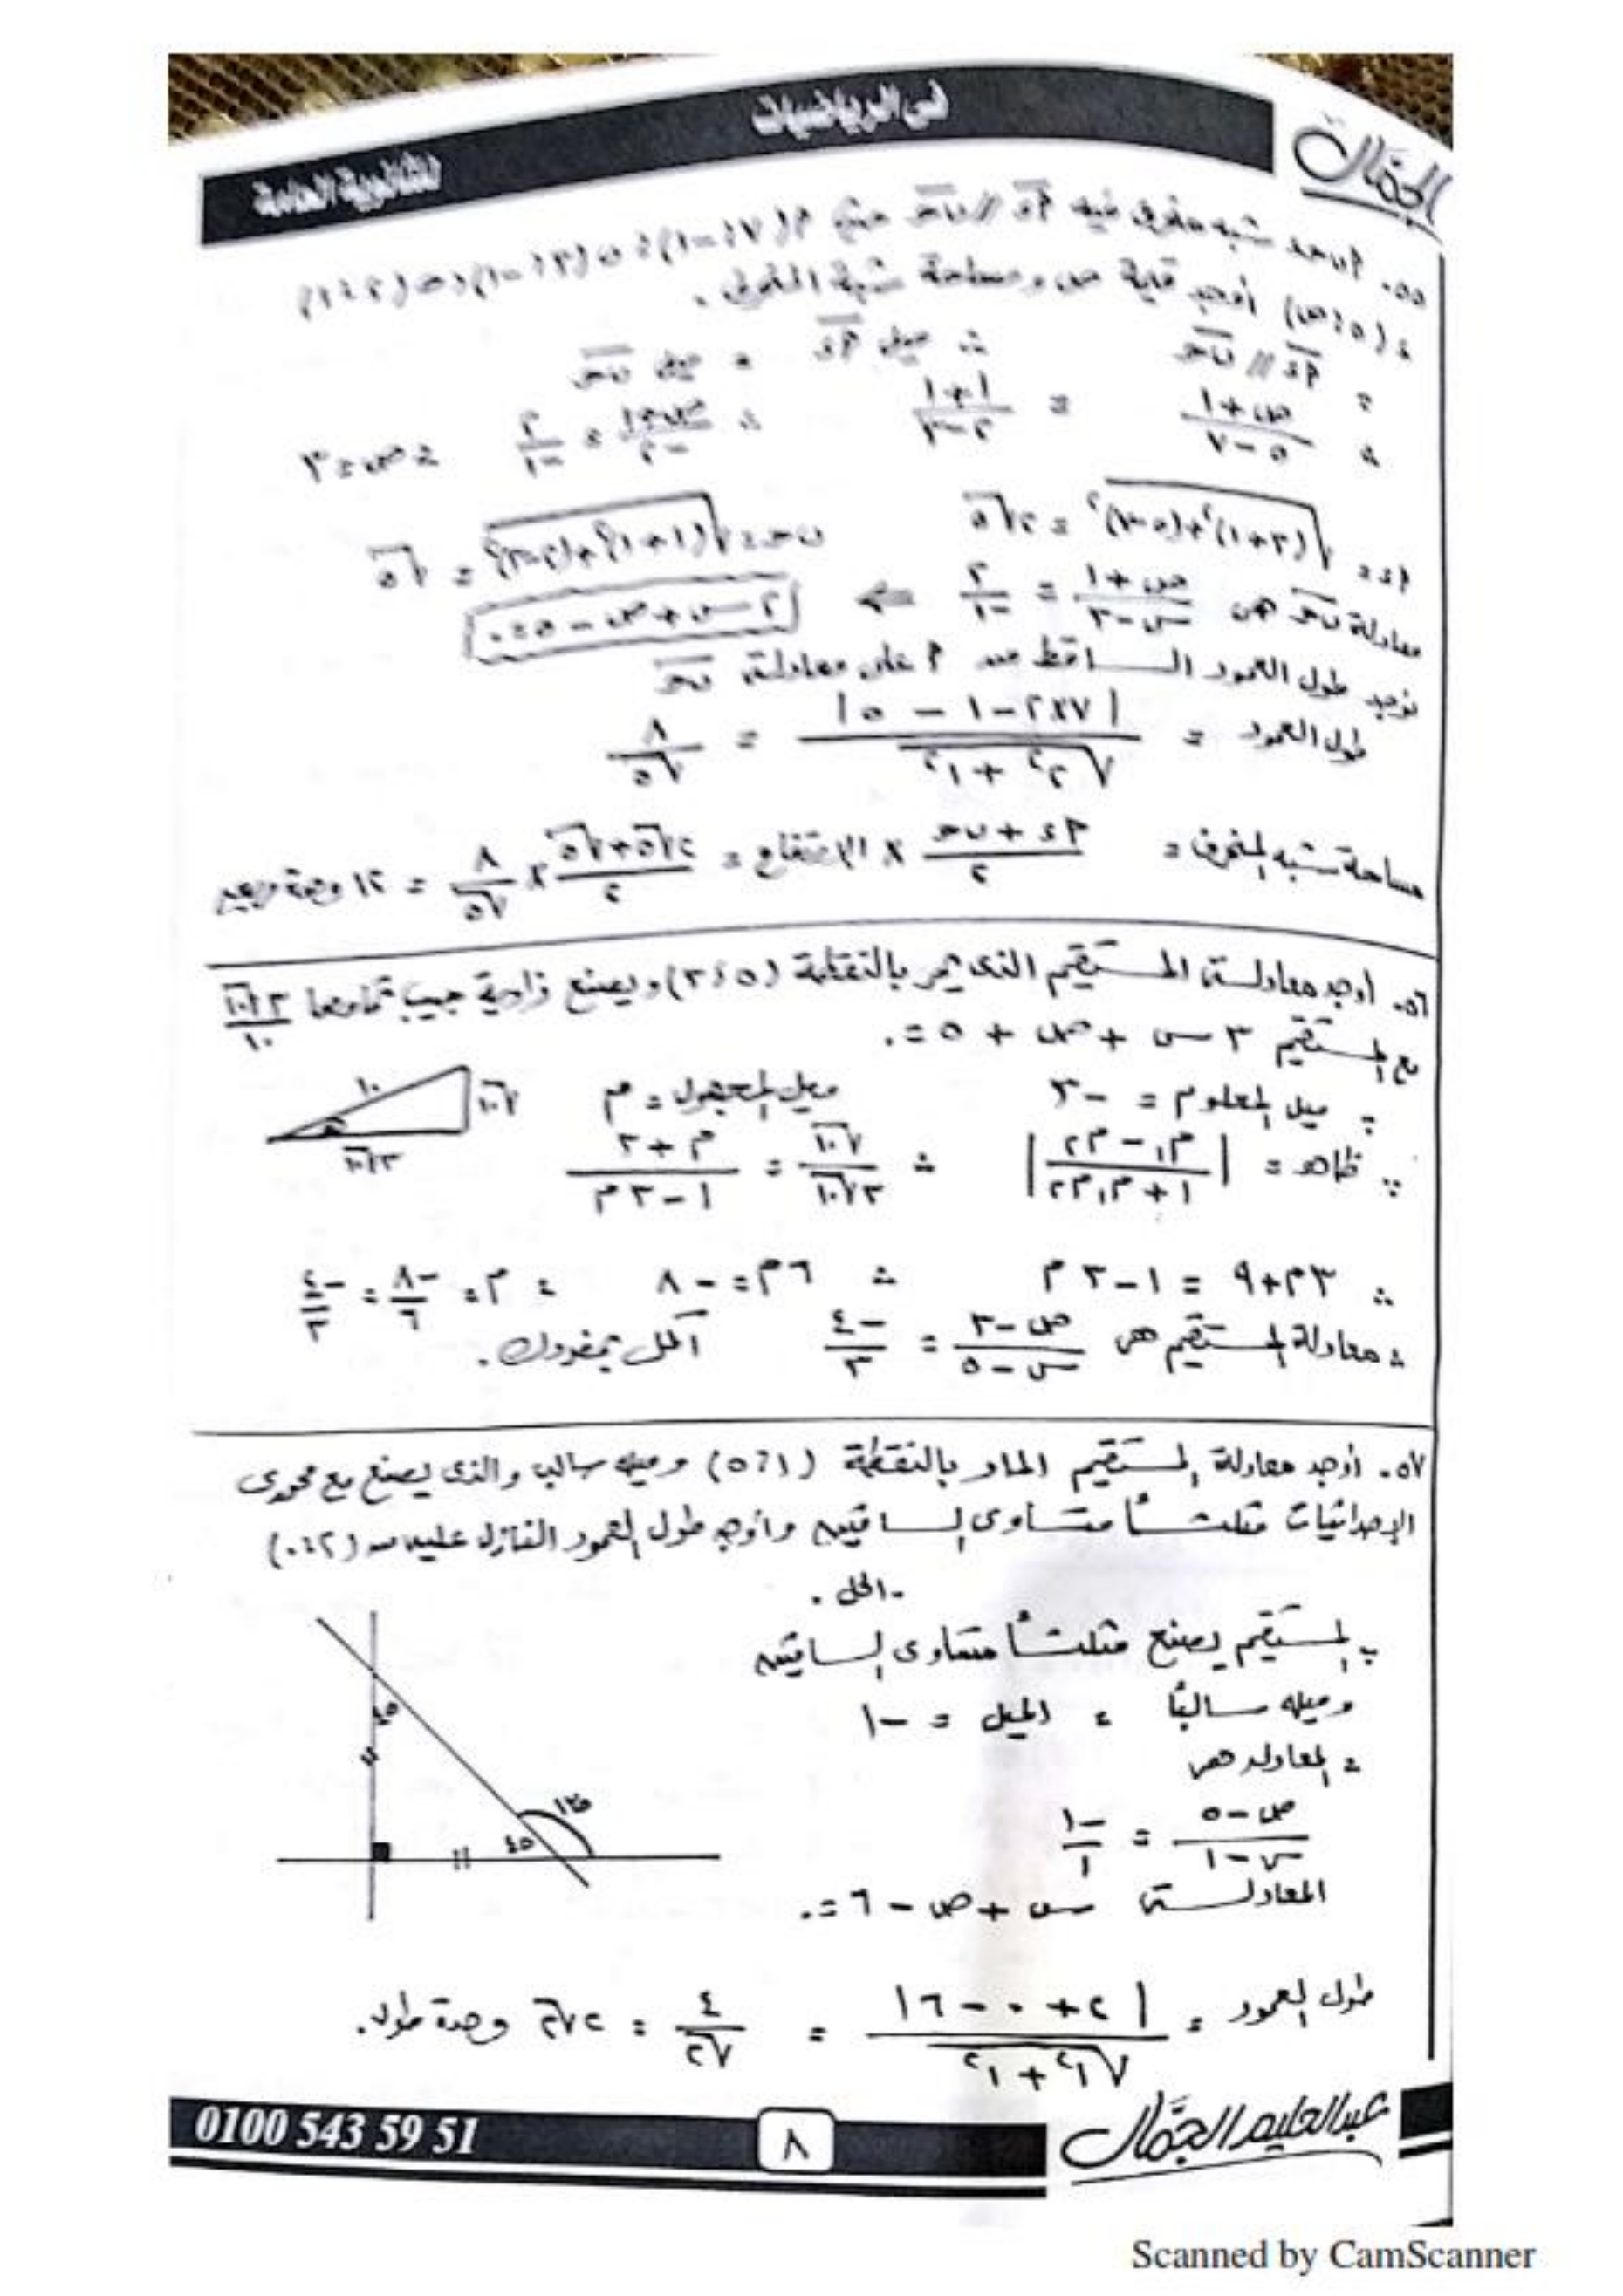 الجمّال
فى الرياضيات
للثانوية العامة
٥٥. ٢ب حـ د شبه منحرف فيه أد // ب حـ حيث أ(٧،-١)، ب(٣،-١)، حـ(٢،١)
، د(٥،ص) أوجد قيمة ص ومساحة شبه المنحرف .
∵ أد // ب حـ ∴ ميل أد = ميل ب حـ
∴ ص+١ / ٥-٧ = ١+١ / ٢-٣ ∴ ص+١ / -٢ = ٢ / -١ ∴ ص = ٣
أد = √(٣+١)²+(٥-٧)² = ٢√٥ ب حـ = √(١+١)²+(٢-٣)² = √٥
معادلة ب حـ هى ص+١ / س-٣ = ٢ / -١ ⇐ ٢س+ص-٥=٠
نوجد طول العمود الساقط من أ على معادلة ب حـ
طول العمود = |٧×٢-١-٥| / √٢²+١² = ٨ / √٥
مساحة شبه المنحرف = أد + ب حـ / ٢ × الارتفاع = ٢√٥+√٥ / ٢ × ٨ / √٥ = ١٢ وحدة مربعة
٥٦. أوجد معادلة المستقيم الذى يمر بالنقطة (٣،٥) ويصنع زاوية جيب تمامها ٣√١٠ / ١٠
مع المستقيم ٣س + ص + ٥ = ٠
∵ ميل المعلوم = -٣ ميل المجهول = م
١٠ √١٠ هـ ٣√١٠
∵ ظا هـ = |م١-م٢ / ١+م١م٢| ∴ √١٠ / ٣√١٠ = م+٣ / ١-٣م
∴ ٣م+٩ = ١-٣م ∴ ٦م = -٨ ∴ م = -٨ / ٦ = -٤ / ٣
∴ معادلة المستقيم هى ص-٣ / س-٥ = -٤ / ٣ أكمل بمفردك .
٥٧. أوجد معادلة المستقيم المار بالنقطة (٥،١) وميله سالب والذى يصنع مع محورى
الإحداثيات مثلثاً متساوى الساقين وأوجد طول العمود النازل عليه من (٠،٢)
- الحل .
∵ المستقيم يصنع مثلثاً متساوى الساقين
وميله سالباً ∴ الميل = -١
∴ المعادلة هى
ص-٥ / س-١ = -١ / ١
المعادلة س + ص - ٦ = ٠
٤٥
٤٥ ١٣٥
طول العمود = |٢+٠-٦| / √١²+١² = ٤ / √٢ = ٢√٢ وحدة طول .
0100 543 59 51
٨
عبدالحليم الجمّال
Scanned by CamScanner